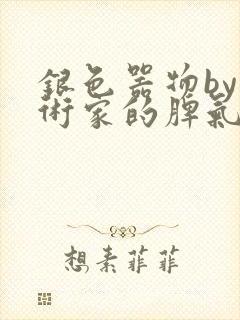 銀色器物by
術家的脾氣
想素菲菲